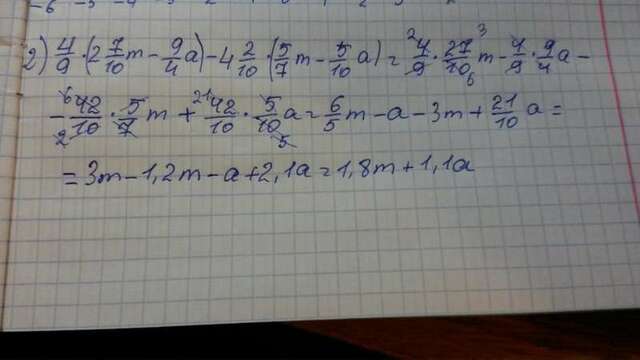 -6 -5 -4 -3
2) 4/9 · (2 7/10 m - 9/4 a) - 4 2/10 · (5/7 m - 5/10 a) = 4/9 · 27/10 m - 4/9 · 9/4 a -
- 42/10 · 5/7 m + 42/10 · 5/10 a = 6/5 m - a - 3m + 21/10 a =
= 3m - 1,2m - a + 2,1a = 1,8m + 1,1a